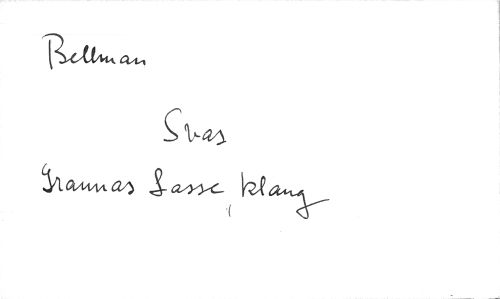 Bellman
Svas
Grannas Lasse, klang